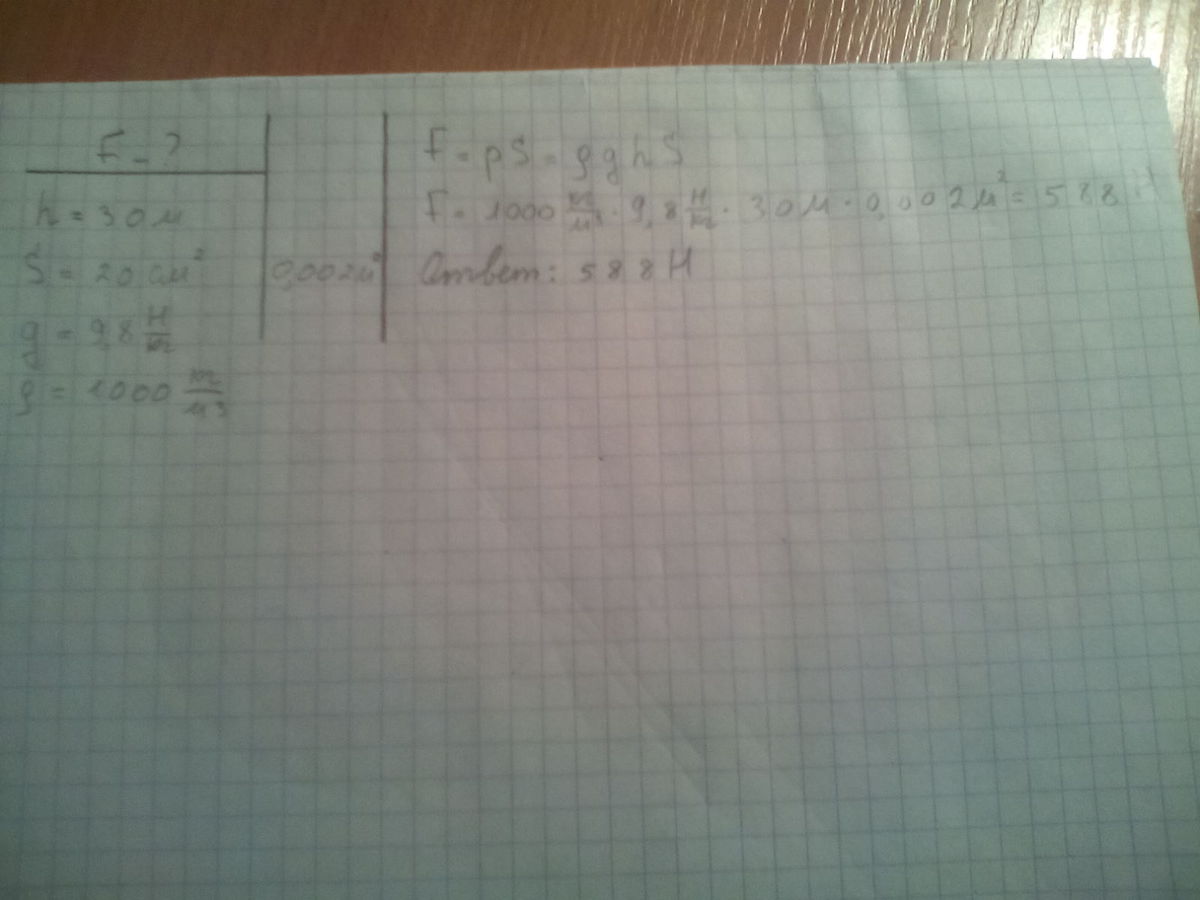 F - ?
h = 30 м
S = 20 см²
0,002 м²
g = 9,8 Н/m
ρ = 1000 m/м³
F = pS = ρghS
F = 1000 m/м³ · 9,8 Н/m · 30 м · 0,002 м² = 588 Н
Ответ: 588 Н